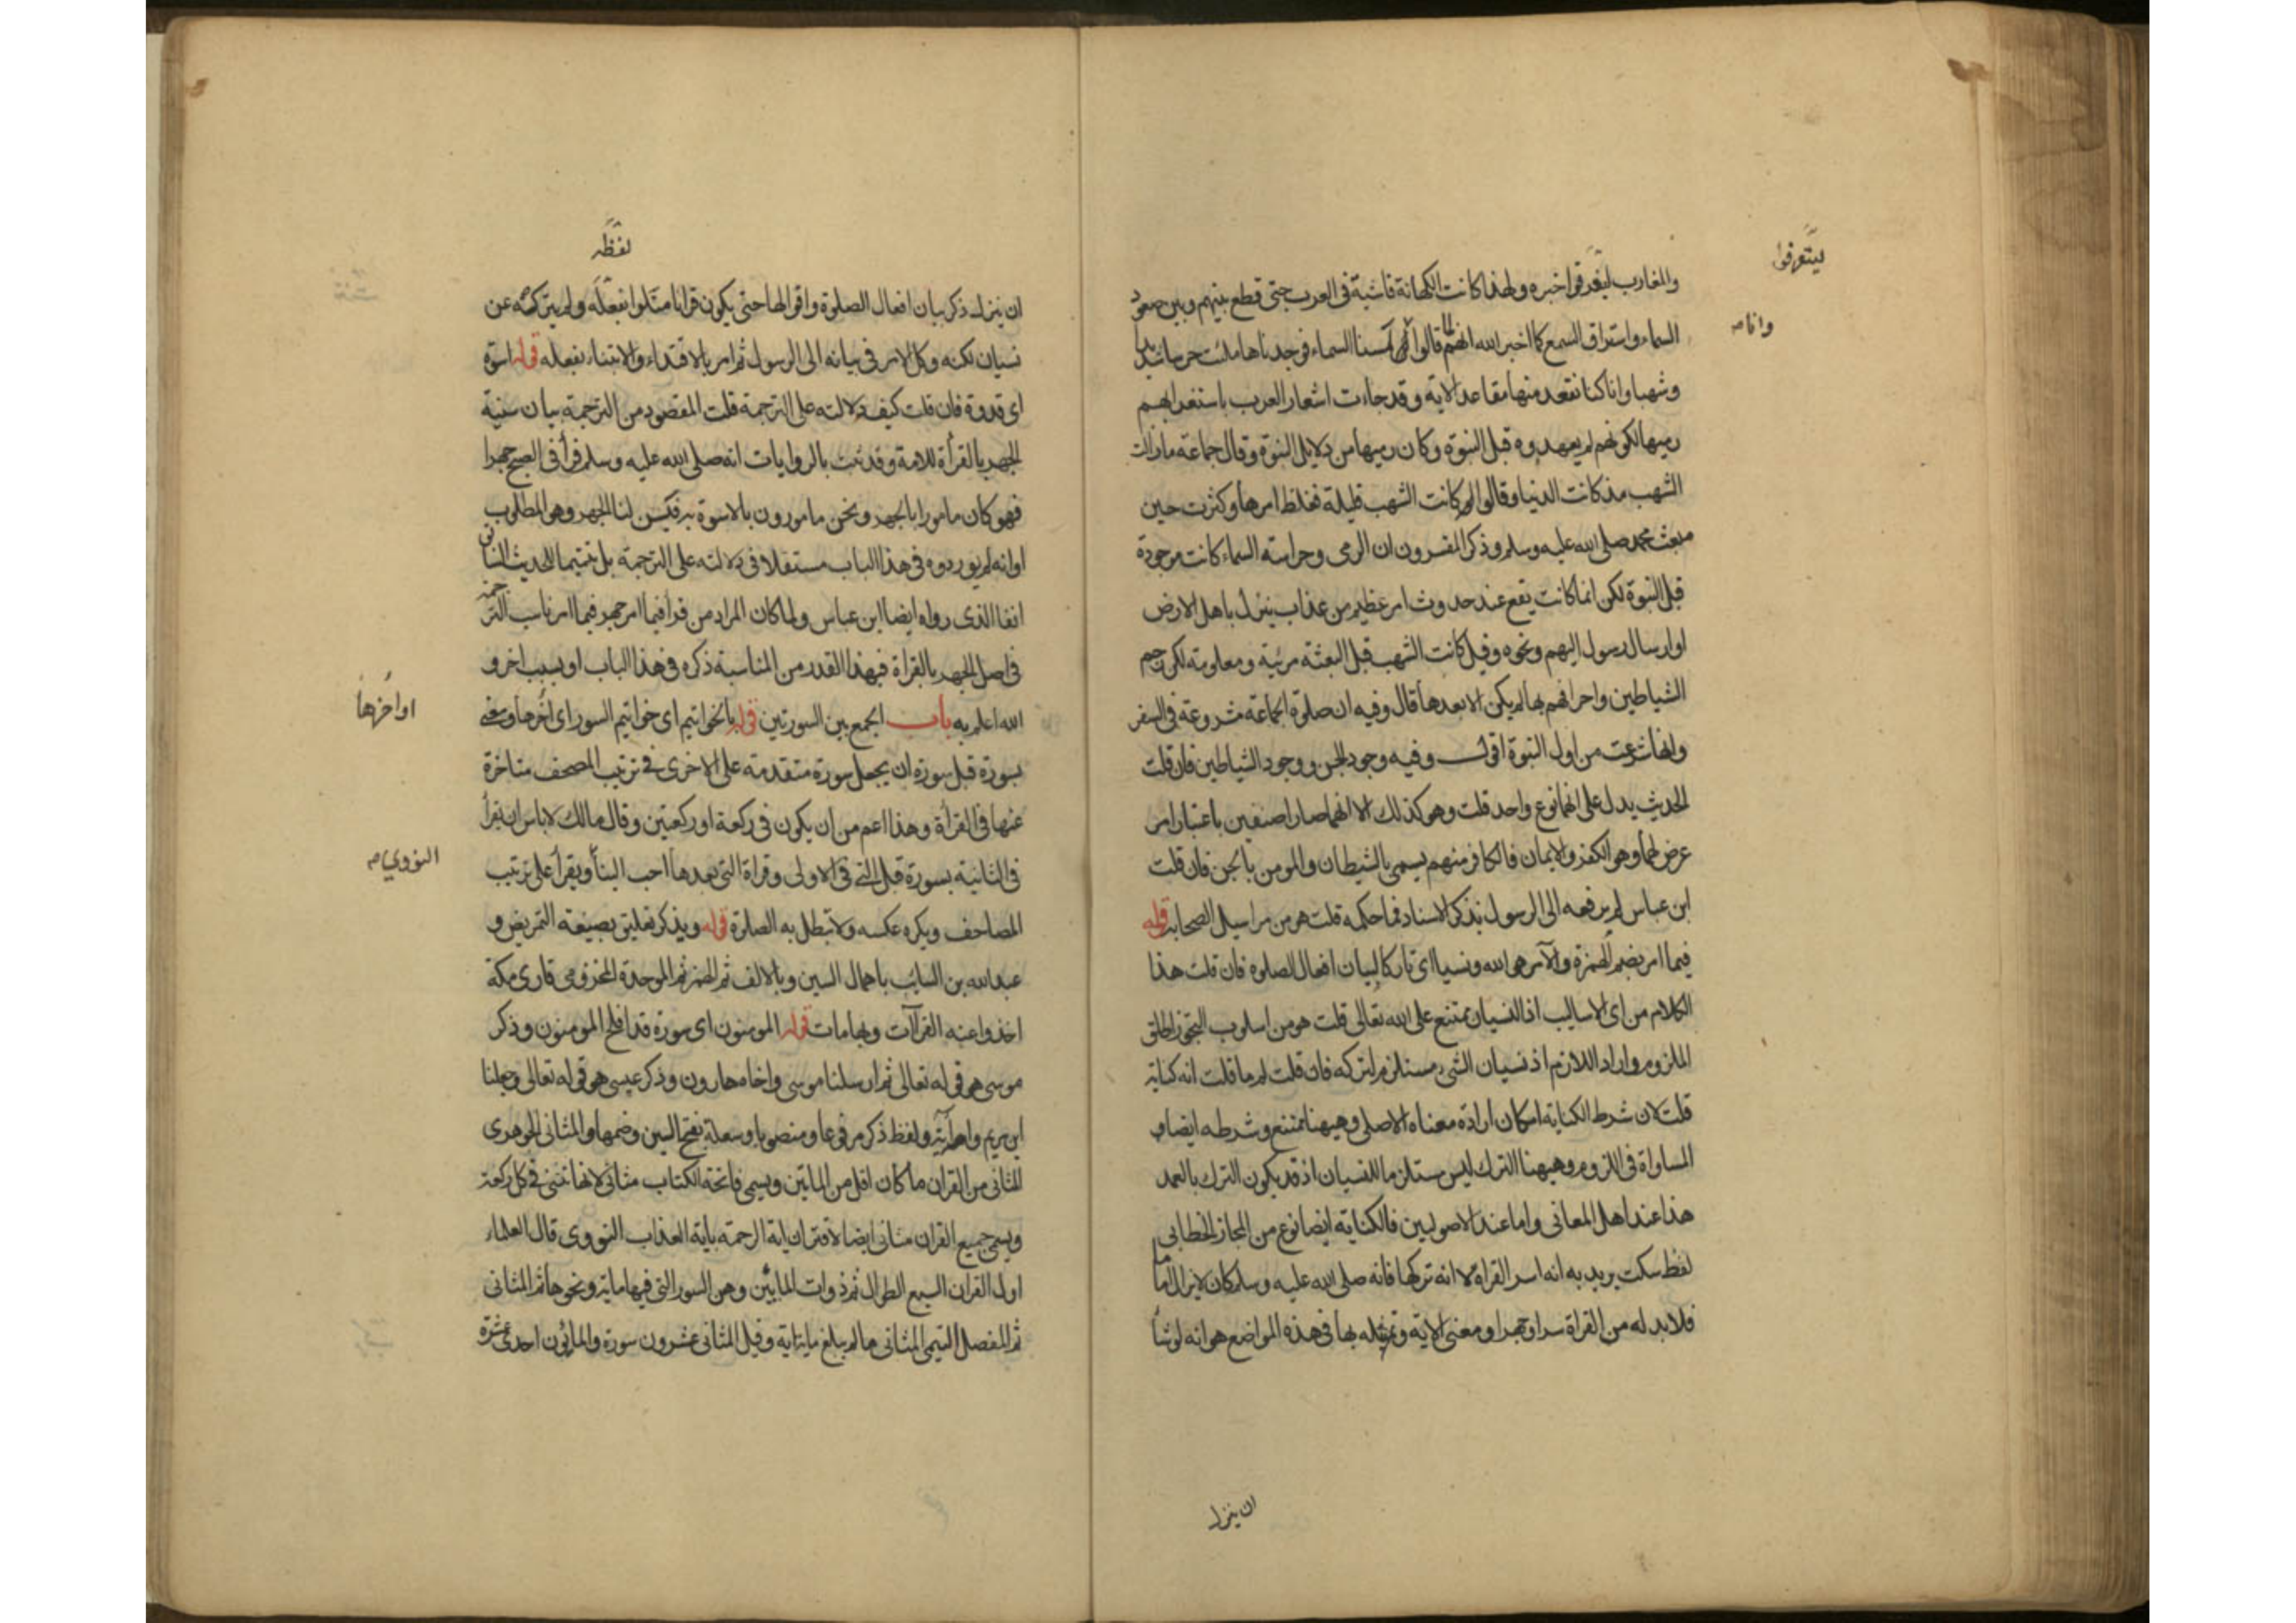 ليتعرفوا
والمغارب ليتعرفوا خبره ولهذا كانت الكهانة فاشية فى العرب حتى قطع بينهم وبين صعود
وانا صـ
السماء واستراق السمع كما اخبر الله انهم قالوا لمسنا السماء فوجدناها ملئت حرسا شديدا
وشهبا وانا كنا نقعد منها مقاعد الاية وقد جاءت اشعار العرب باستغرابهم
رميها لكونهم لم يعهدوه قبل النبوة وكان رميها من دلايل النبوة وقال جماعة ما زالت
الشهب مذ كانت الدنيا وقالوا كانت الشهب قليلة فغلظ امرها وكثرت حين
مبعث محمد صلى الله عليه وسلم وذكر المفسرون ان الرمى وحراسة السماء كانت موجودة
قبل النبوة لكن انما كانت يقع عند حدوث امر عظيم من عذاب ينزل باهل الارض
او ارسال رسول اليهم ونحوه وقيل كانت الشهب قبل البعثة مرئية ومعلومة لكن رجم
الشياطين واحراقهم بها لم يكن الا بعدها قال وفيه ان صلوة الجماعة مشروعة فى السفر
وانها شرعت من اول النبوة اقول وفيه وجود الجن ووجود الشياطين فان قلت
الحديث يدل على انهما نوع واحد قلت وهو كذلك الا انهما صارا صنفين باعتبار امر
عرض لهما وهو الكفر والايمان فالكافر منهم يسمى بالشيطان والمومن بالجن فان قلت
ابن عباس لم يرفعه الى الرسول بذكر الاسناد فما حكمه قلت هو من مراسيل الصحابة قوله
فيما امر بضم الهمزة والآمر هو الله ونسيا اى تاركا لبيان افعال الصلوة فان قلت هذا
الكلام من اى الاساليب اذ النسيان ممتنع على الله تعالى قلت هو من اسلوب التجوز اطلق
الملزوم واراد اللازم اذ نسيان الشى مستلزم لتركه فان قلت لم ما قلت انه كناية
قلت لان شرط الكناية امكان ارادة معناه الاصلى وهيهنا ممتنع وشرطه ايضا
المساواة فى اللزوم وهيهنا الترك ليس مستلزما للنسيان اذ قد يكون الترك بالعمد
هذا عند اهل المعانى واما عند الاصوليين فالكناية ايضا نوع من المجاز الخطابى
لفظ سكت يريد به انه اسر القراة لا انه تركها فانه صلى الله عليه وسلم كان لا يزال اماما
فلا بد له من القراة سرا وجهرا ومعنى الاية وتمثله بها فى هذه المواضع هو انه لو شا
ان ينزل
لفظه
ان ينزل ذكر بيان افعال الصلوة واقوالها حتى يكون قرانا متلوا لفعله ولم يتركه عن
نسيان لكنه وكل الامر فى بيانه الى الرسول ثم امر بالاقتداء والايتساء بفعله قوله اسوة
اى قدوة فان قلت كيف دلالته على الترجمة قلت المقصود من الترجمة بيان سنية
الجهر بالقرأة للامة وقد ثبت بالروايات انه صلى الله عليه وسلم قرأ فى الصبح جهرا
فهو كان مامورا بالجهر ونحن مامورون بالاسوة به فيسن لنا الجهر وهو المطلوب
او انه لم يورده فى هذا الباب مستقلا فى دلالته على الترجمة بل تتميما للحديث الثانى
انفا الذى رواه ايضا ابن عباس ولما كان المراد من قرأ فيما امر جهر فيما امر ناسب الترجمة
فى اصل الجهر بالقراة فبهذا القدر من المناسبة ذكره فى هذا الباب او بسبب اخر و
الله اعلم به باب الجمع بين السورتين قوله بالخواتيم اى خواتيم السور اى اخرها ومعنى
اواخرها
بسورة قبل سورة ان يجعل سورة متقدمة على الاخرى فى ترتيب المصحف متاخرة
عنها فى القرأة وهذا اعم من ان يكون فى ركعة او ركعتين وقال مالك لا باس ان يقرأ
فى الثانية بسورة قبل التى فى الاولى وقراة التى بعدها احب الينا ويقرأ على ترتيب
النووى صـ
المصاحف ويكره عكسه ولا تبطل به الصلوة قوله ويذكر تعليق بصيغة التمريض و
عبد الله بن السايب باهمال السين وبالالف ثم الهمز ثم الموحدة المخزومى قارى مكة
اخذوا عنه القراآت وبها مات قوله المومنون اى سورة قد افلح المومنون وذكر
موسى هو قوله تعالى ثم ارسلنا موسى واخاه هارون وذكر عيسى هو قوله تعالى وجعلنا
ابن مريم وامه آية ولفظ ذكر مرفوعا ومنصوبا وسعلة بفتح السين وضمها والمثانى الجوهرى
المثانى من القران ما كان اقل من الماتين ويسمى فاتحة الكتاب مثانى لانها تثنى فى كل ركعة
ويسمى جميع القران مثانى ايضا لاقتران اية الرحمة باية العذاب النووى قال العلماء
اول القران السبع الطوال ثم ذوات المايين وهن السور التى فيها ماية ونحوها ثم المثانى
ثم المفصل التيمى المثانى ما لم يبلغ ماية اية وقيل المثانى عشرون سورة والمايون احدى عشرة